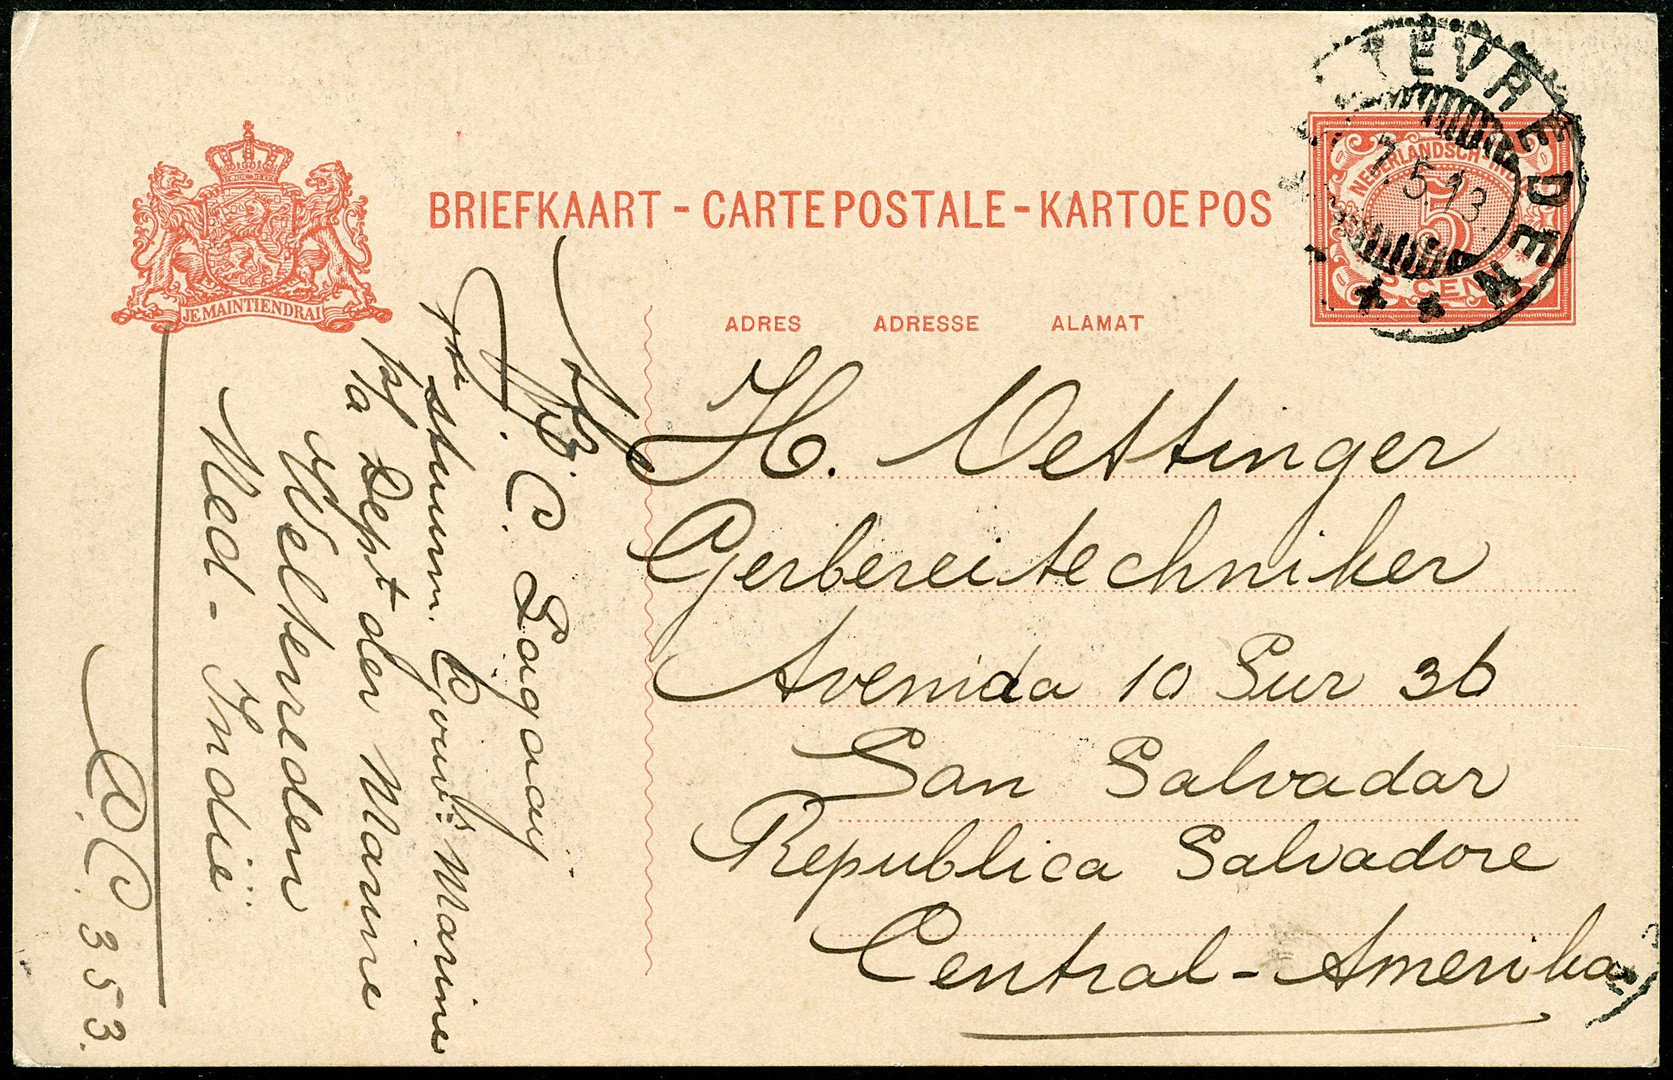 BRIEFKAART - CARTE POSTALE - KARTOE POS
JE MAINTIENDRAI
TEVREDEN
7.5.13
NEDERLANDSCH-IN
5
CENT
ADRES ADRESSE ALAMAT
H. Oettinger
Gerbereitechniker
Avenida 10 Sur 36
San Salvador
Republica Salvadore
Central-Amerika
J. B. C. Lagaaij.
stuurm. Gouvts Marine
p/a Dept der Marine
Weltevreden
Ned - Indië.
C. 353.